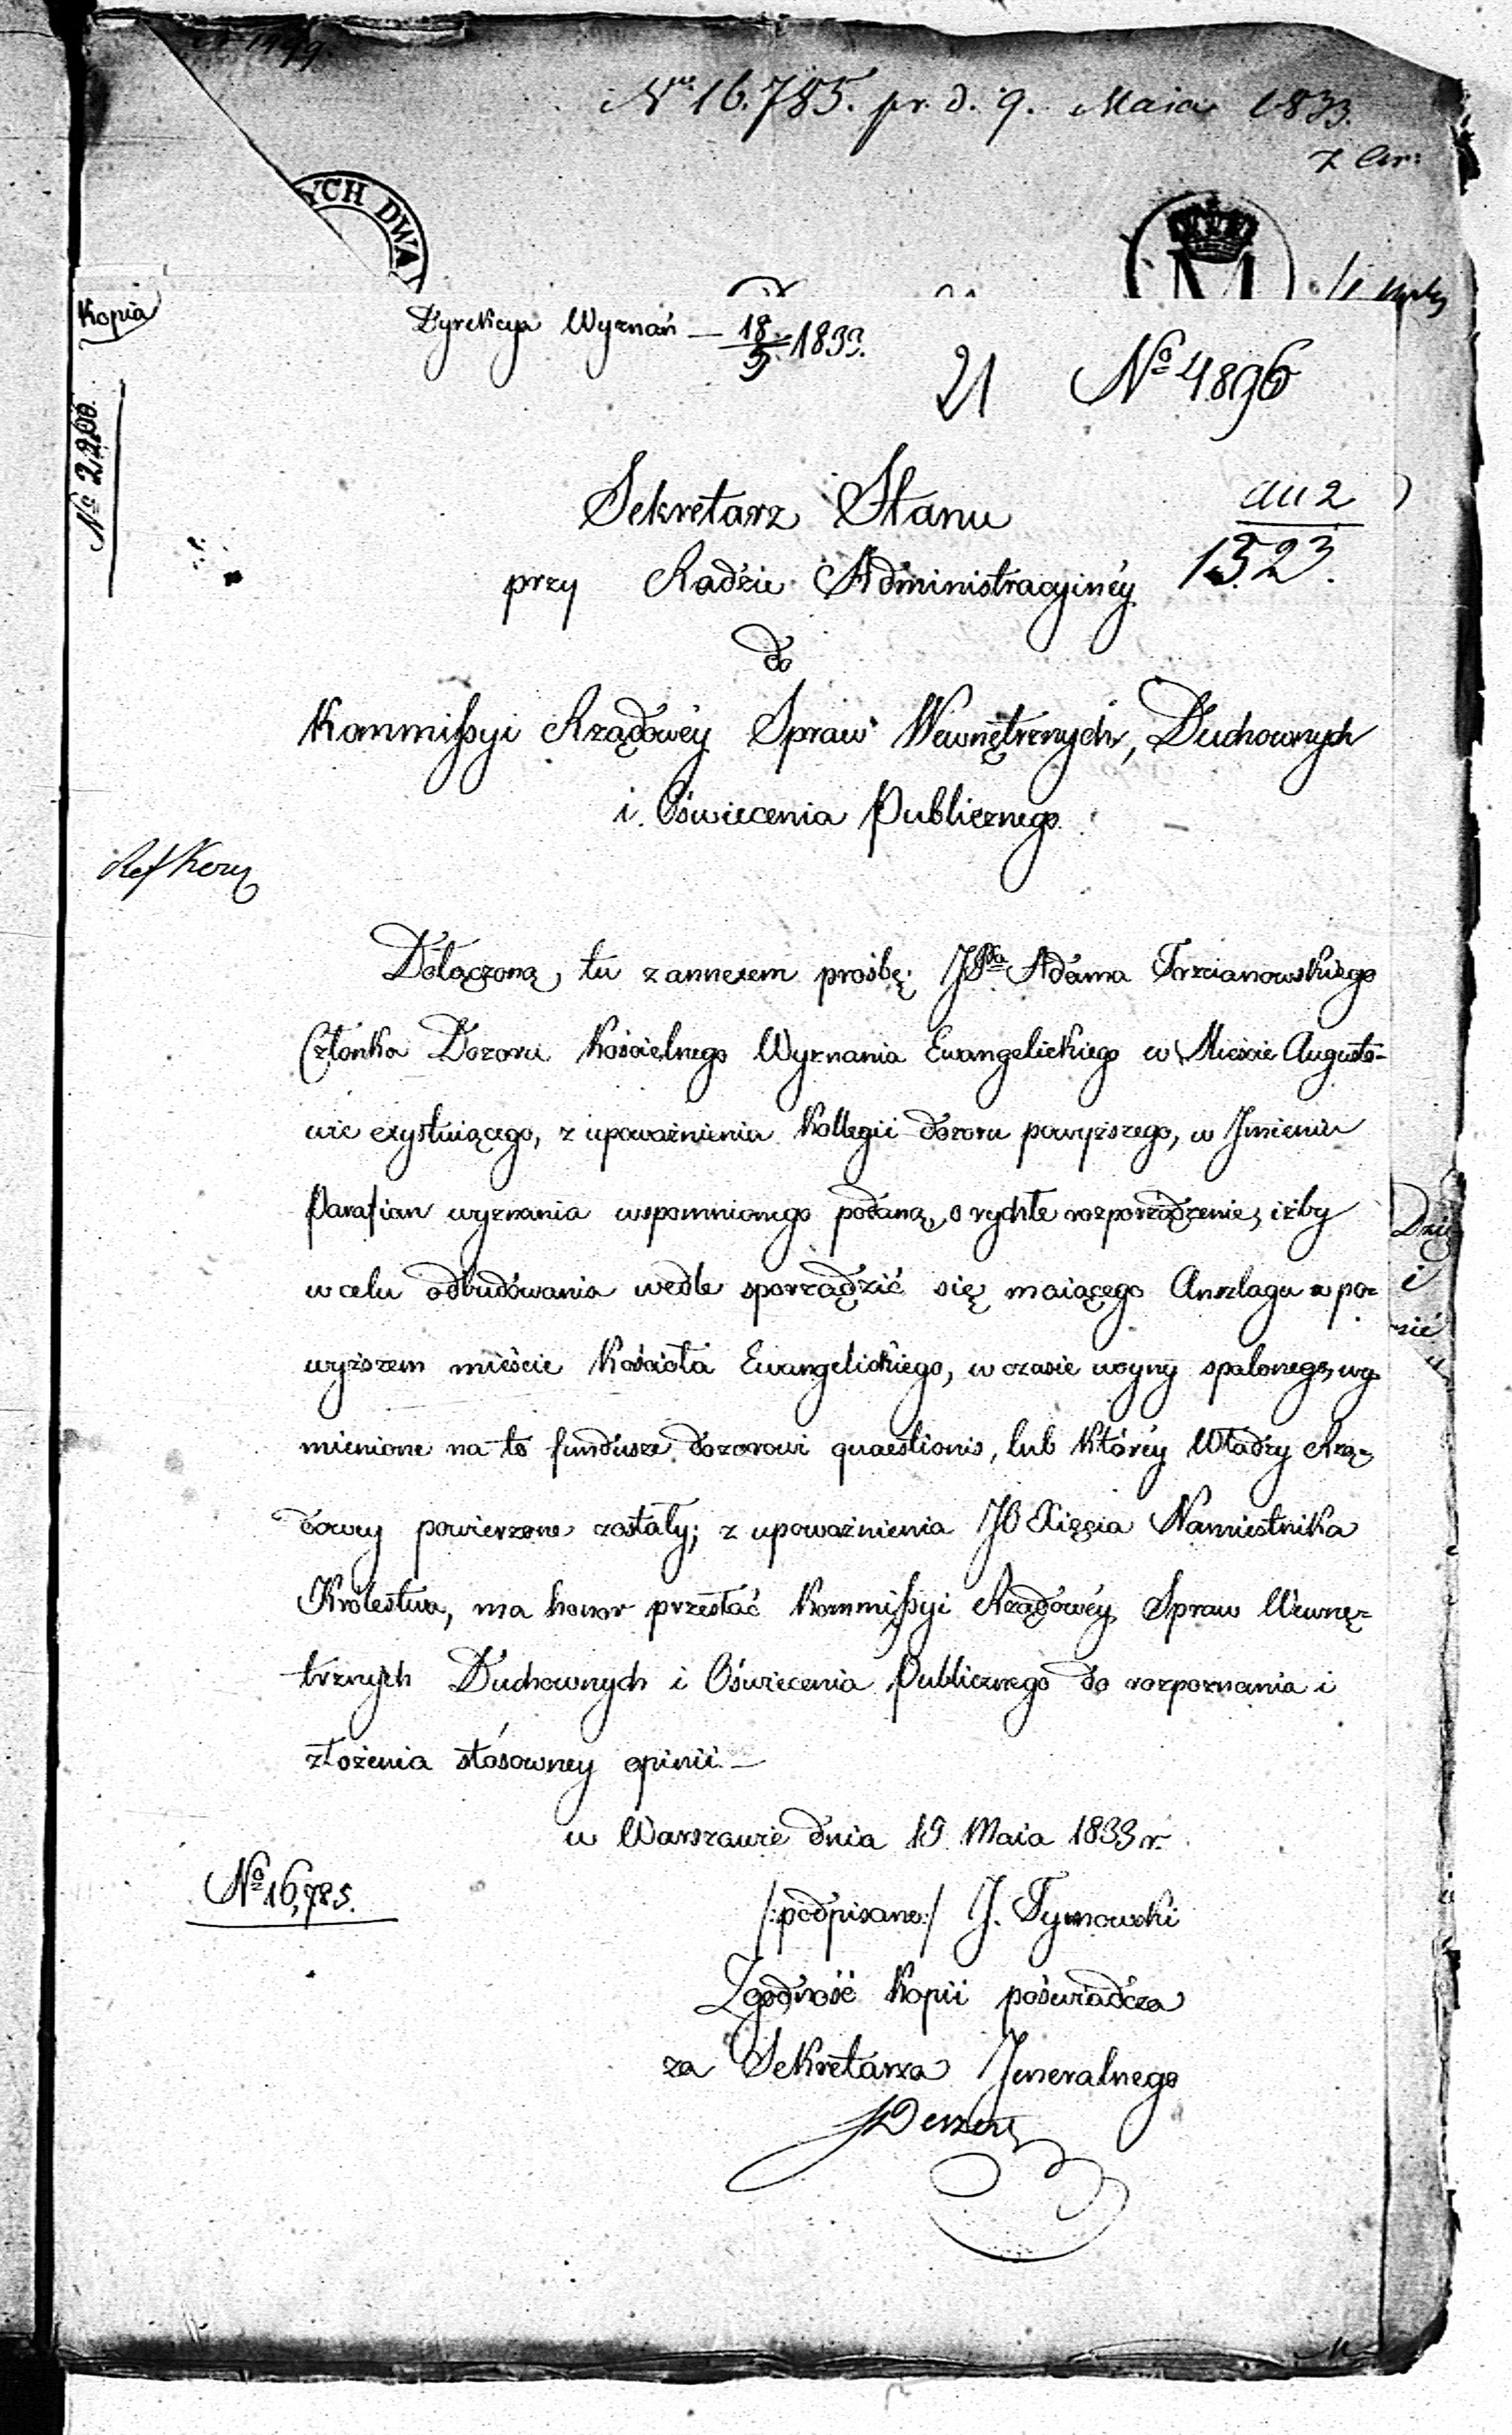 Nro 16.785. pr. d. 9. Maia 1833.
YCH DWA
M
Kopia
Dyrekcya Wyznań — 18/5 1833.
21 No 4896
No 2,200.
Sekretarz Stanu
au 2
przy Radzie Administracyinéy
1523.
do
Kommissyi Rządowéy Spraw Wewnętrznych, Duchownych
i Oświecenia Publicznego
Dołączoną tu z annexem prośbę JPa Adama Trzcianowskiego
Członka Dozoru Kościelnego Wyznania Ewangelickiego w Mieście Augusto-
wie exystuiącego, z upoważnienia Kollegii dozoru powyższego, w Jmieniu
Parafian wyznania wspomnionego podaną, o rychłe rozporządzenie, iżby
w celu odbudowania wedle sporządzić się maiącego Anszlagu w po-
wyższem mieście Kościoła Ewangelickiego, w czasie woyny spalonego, wy-
mienione na to fundusze dozorowi quaestionis, lub któréy Władzy Rzą-
dowey powierzone zostały; z upoważnienia JO Xięcia Namiestnika
Królestwa, ma honor przesłać Kommissyi Rządowéy Spraw Wewnę-
trznych Duchownych i Oświecenia Publicznego do rozpoznania i
złożenia stósowney opinii —
w Warszawie dnia 15 Maia 1833 r.
No 16,785.
/:podpisano:/ J. Tymowski
Zgodność Kopii poświadcza
za Sekretarza Jeneralnego